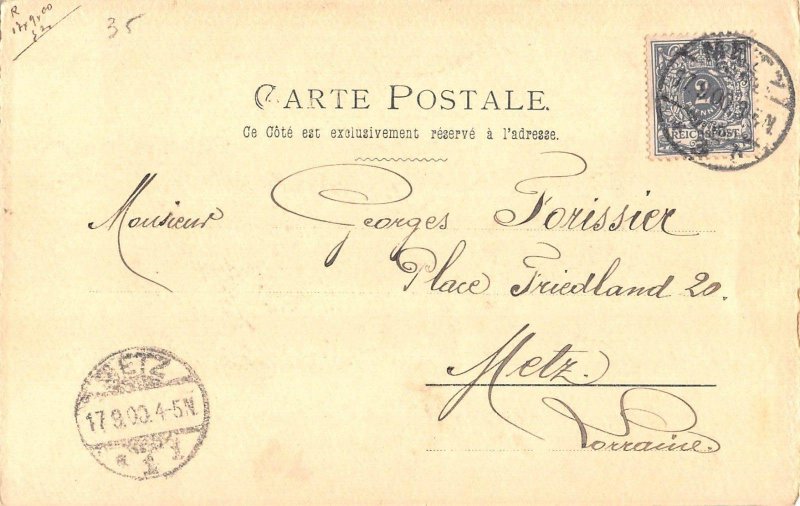 R
17x9x00
35
CARTE POSTALE.
Ce Côté est exclusivement réservé à l'adresse.
METZ
17.9.00.3-4N
2
REICHSPOST
Monsieur Georges Forissier
Place Friedland 20.
Metz.
Lorraine.
METZ
17.9.00.4-5N.
* 1 1